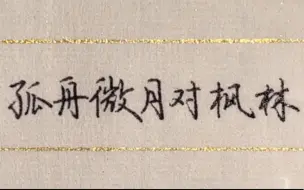 孤舟微月对枫林